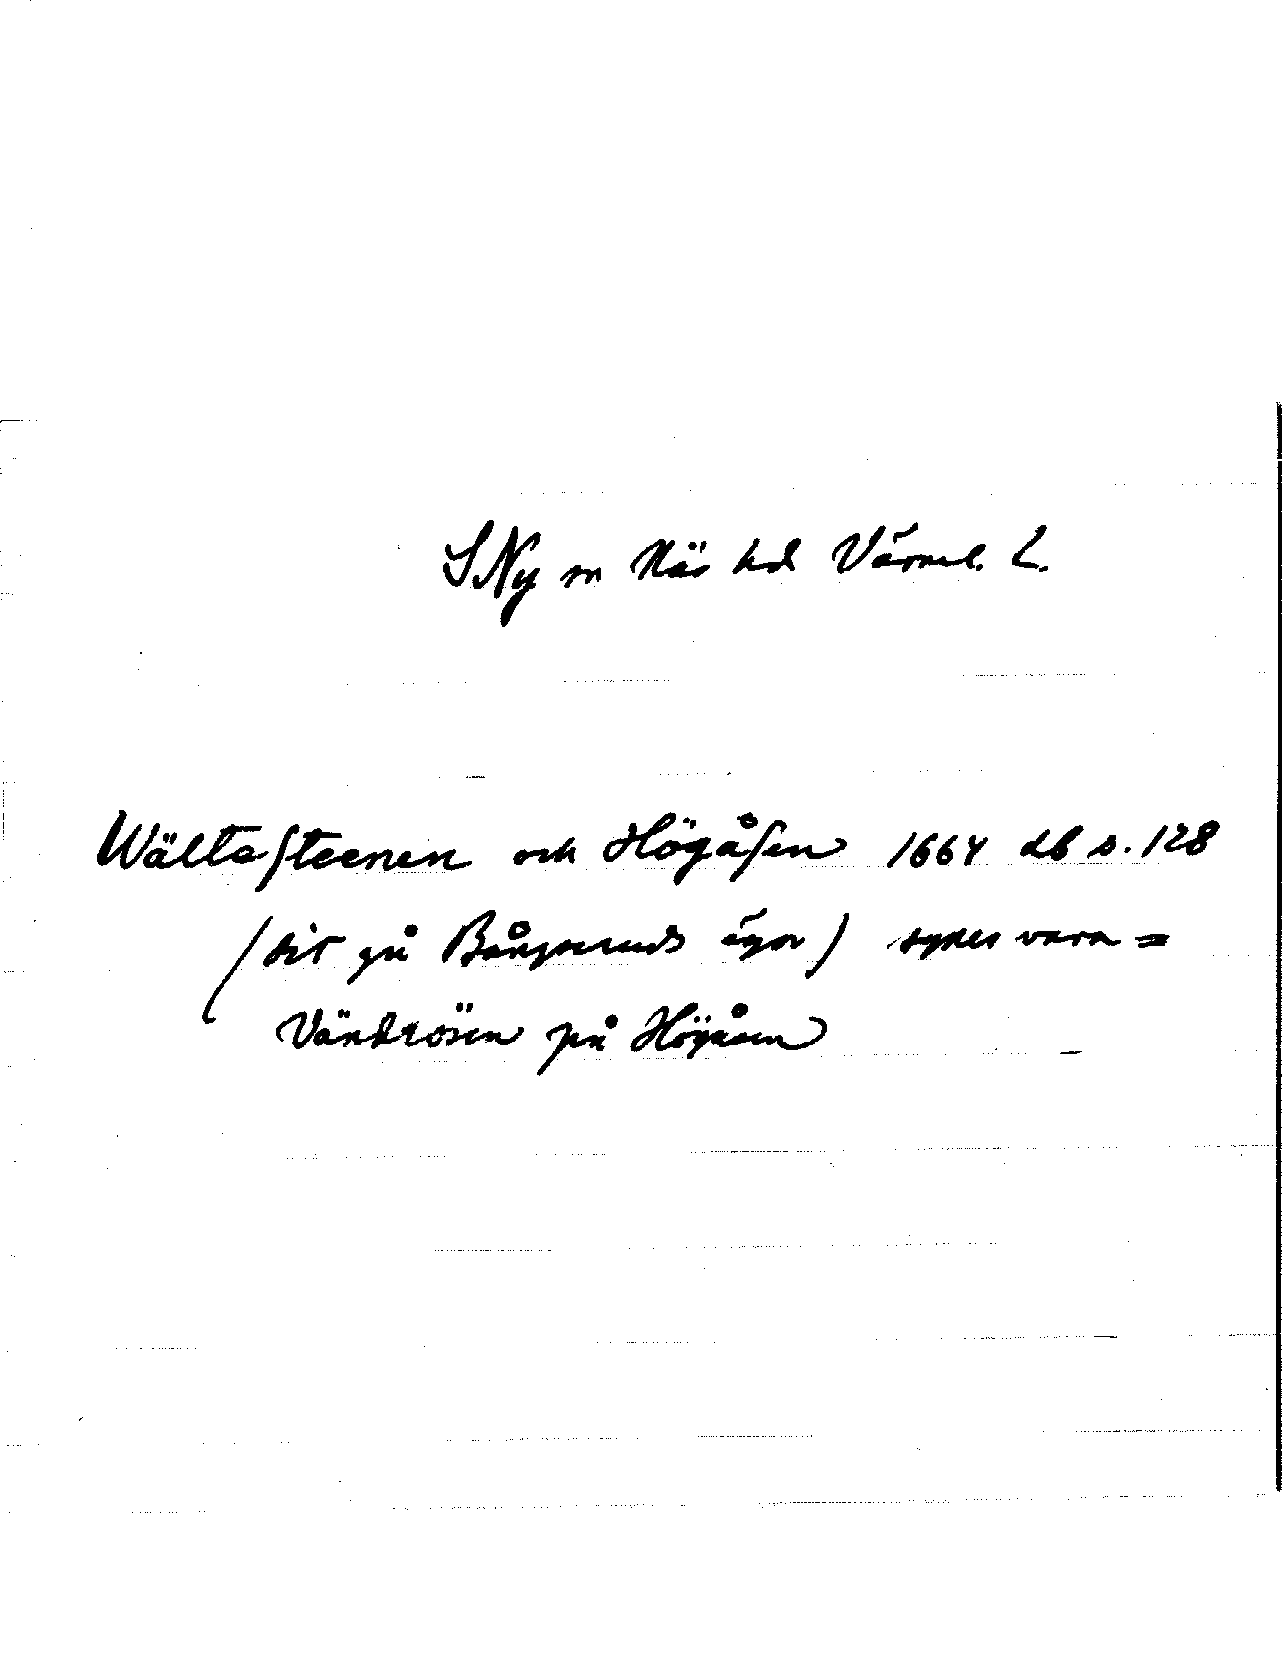 S Ny sn Näs hd Värml. L.
Wälta steenen och Högåsen 1664 db s. 128
(hit på ägor) synes vara =
Vändrösen på Högåsen